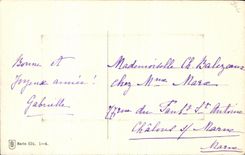 Bonne et
Joyeux année !
Gabrielle
Mademoiselle Ch. Balezeaux
chez Mme Marc
rue du Faub. St Antoine
Châlons s/ Marne
Marne